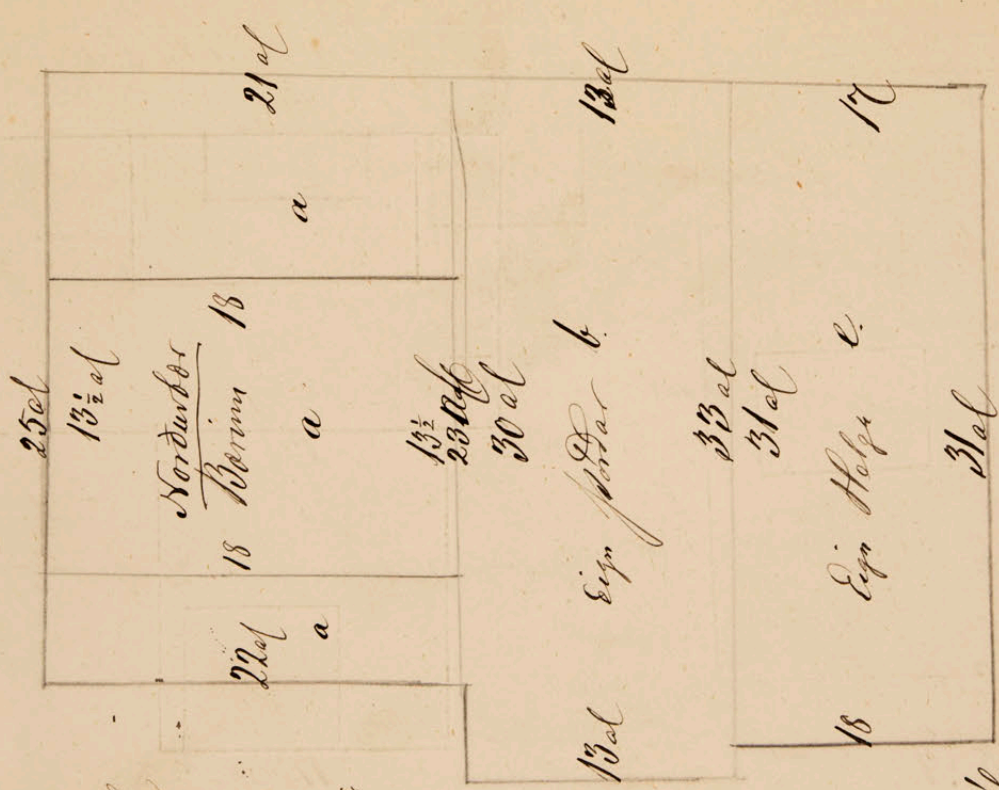 25 al
13½ al
21 al
a
Norðurbær
18 Bærinn 18
a
22 al
a
13½
30 al
13 al
Eign Þórðar b.
13 al
33 al
31 al
17
Eign Helga c.
18
31 al